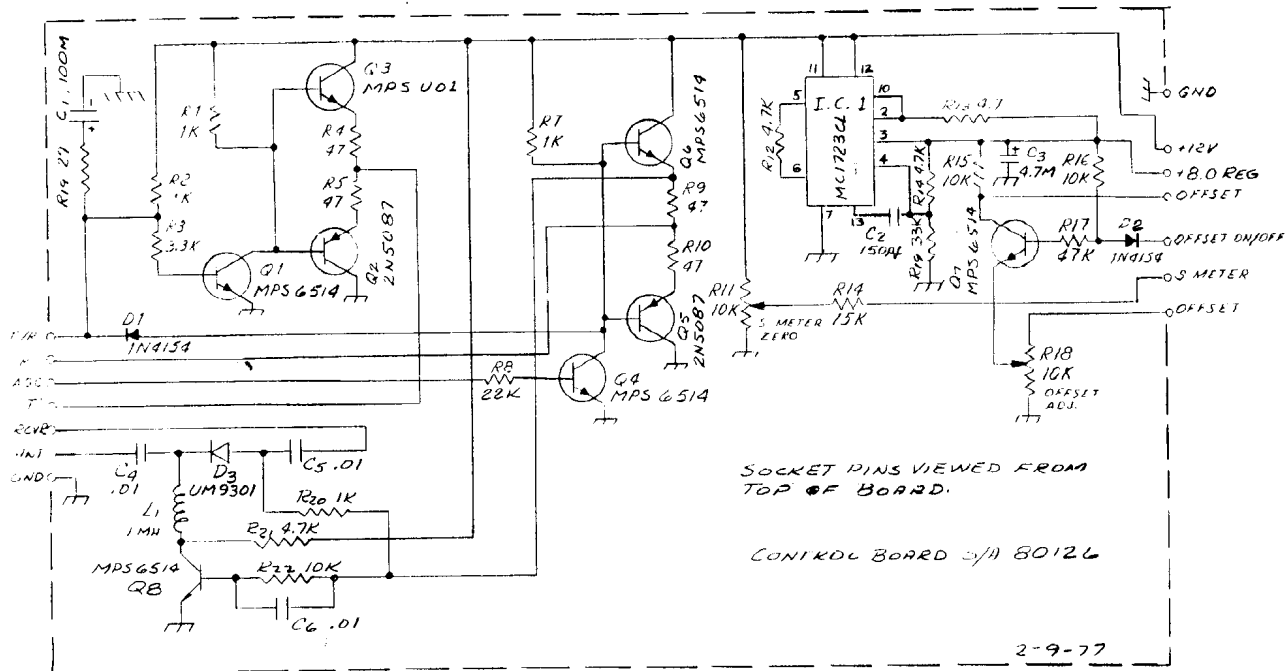 C1 .100M
R19 27
R1
1K
R2
1K
R3
3.3K
Q3
MPS U01
R4
47
R5
47
Q2
2N5087
Q1
MPS6514
D1
1N4154
R7
1K
Q6
MPS6514
R9
47
R10
47
Q5
2N5087
R8
22K
Q4
MPS 6514
R11
10K
S METER
ZERO
R14
15K
11
12
5
10
I.C. 1
2
3
MC1723CL
4
6
7
13
R12 4.7K
C2
150Pf
R13 4.7
R14 4.7K
R19 33K
R15
10K
C3
4.7M
R16
10K
Q7
MPS 6514
R17
47K
D2
1N4154
R18
10K
OFFSET
ADJ.
GND
+12V
+8.0 REG
OFFSET
OFFSET ON/OFF
S METER
OFFSET
T/R
R
AGC
T
RCVR
ANT
GND
C4
.01
D3
UM9301
C5 .01
L1
1MH
R20 1K
R21 4.7K
MPS6514
Q8
R22 10K
C6 .01
SOCKET PINS VIEWED FROM
TOP OF BOARD.
CONTROL BOARD S/A 80126
2-9-77